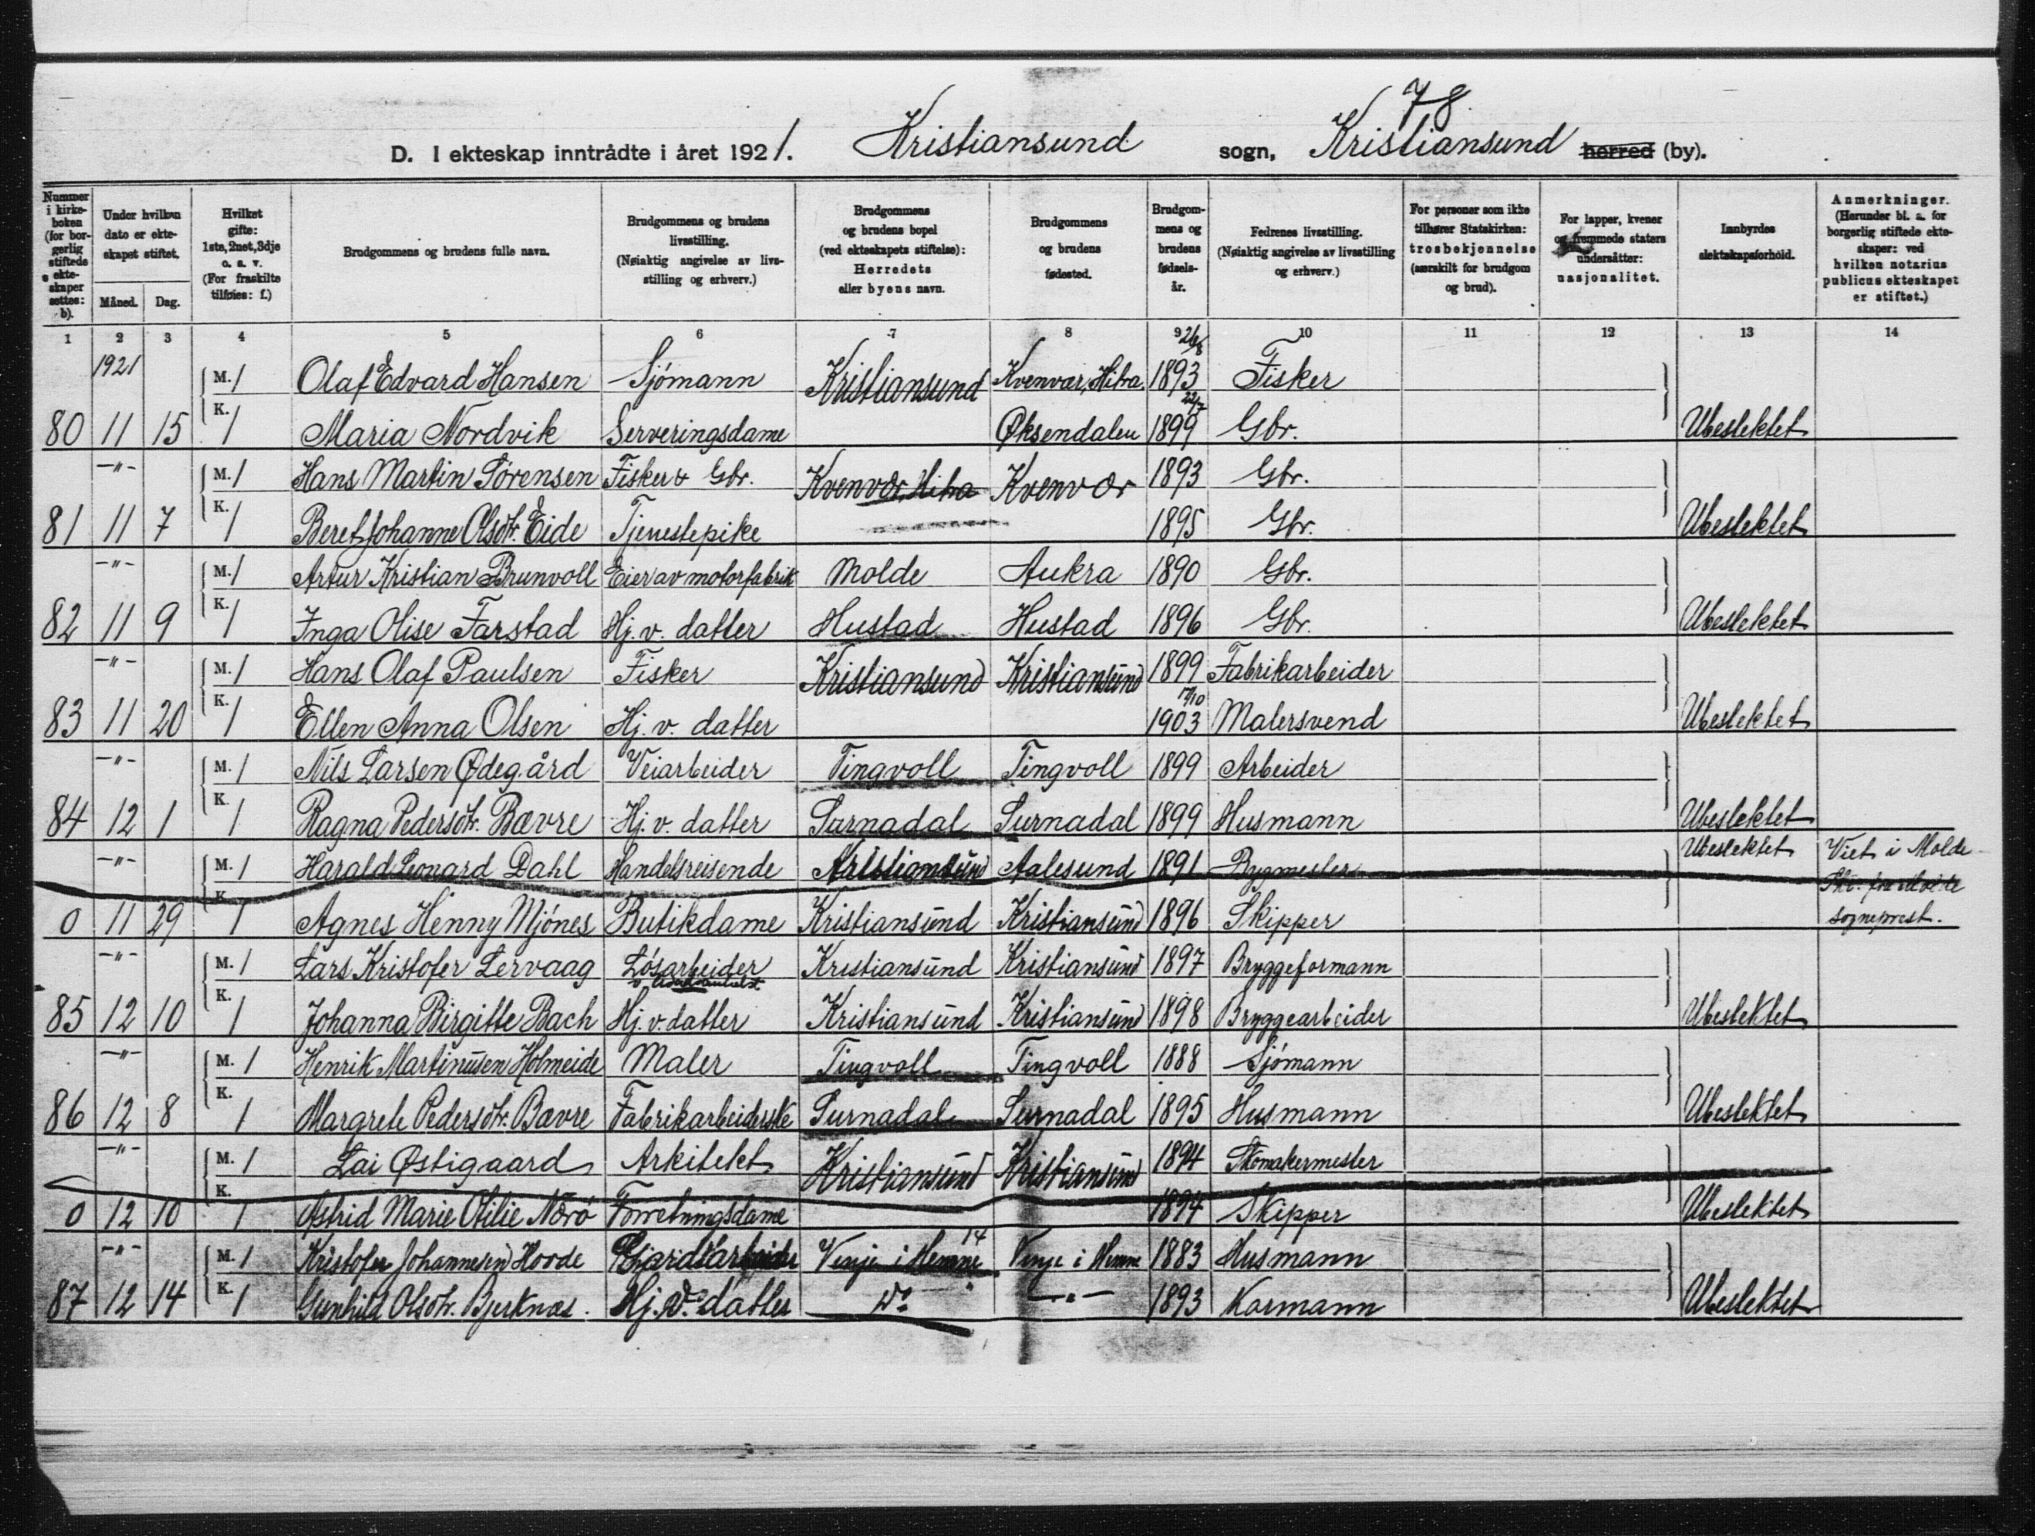 78
D. I ekteskap inntrådte i året 1921. Kristiansund sogn, Kristiansund herred (by).
Nummer i kirkeboken (for borgerlig stiftede ekteskaper settes: b).
Under hvilken dato er ekteskapet stiftet.
Måned. Dag.
Hvilket gifte: 1ste, 2net, 3dje o. s. v. (For fraskilte tilføies: f.)
Brudgommens og brudens fulle navn.
Brudgommens og brudens livsstilling. (Nøiaktig angivelse av livsstilling og erhverv.)
Brudgommens og brudens bopel (ved ekteskapets stiftelse): Herredets eller byens navn.
Brudgommens og brudens fødested.
Brudgommens og brudens fødselsår.
Fedrenes livsstilling. (Nøiaktig angivelse av livsstilling og erhverv.)
For personer som ikke tilhører Statskirken: trosbekjennelse (særskilt for brudgom og brud).
For lapper, kvener og fremmede staters undersåtter: nasjonalitet.
Innbyrdes slektskapsforhold.
Anmerkninger. (Herunder bl. a. for borgerlig stiftede ekteskaper: ved hvilken notarius publicus ekteskapet er stiftet.)
1 2 3 4 5 6 7 8 9 10 11 12 13 14
1921 M. 1 Olaf Edvard Hansen Sjómann Kristiansund Kvenvær, Hitra. 26/8 1893 Fisker
80 11 15 K. 1 Maria Nordvik Serveringsdame Øksendalen 22/7 1899 Gbr. Ubeslektet
-"- M. 1 Hans Martin Sørensen Fisker & Gbr. Kvenvær, Hitra Kvenvær 1893 Gbr.
81 11 7 K. 1 Beret Johanne Olsdtr. Eide Tjenestepike 1895 Gbr. Ubeslektet
-"- M. 1 Artur Kristian Brunvoll Eier av motorfabrik Molde Aukra 1890 Gbr.
82 11 9 K. 1 Inga Olise Farstad Hj. v. datter Hustad Hustad 1896 Gbr. Ubeslektet
-"- M. 1 Hans Olaf Paulsen Fisker Kristiansund Kristiansund 1899 Fabrikarbeider
83 11 20 K. 1 Ellen Anna Olsen Hj. v. datter 17/10 1903 Malersvend Ubeslektet
-"- M. 1 Nils Larsen Ødegård Veiarbeider Tingvoll Tingvoll 1899 Arbeider
84 12 1 K. 1 Ragna Pedersdtr. Bævre Hj. v. datter Surnadal Surnadal 1899 Husmann Ubeslektet
-"- M. 1 Harald Leonard Dahl Handelsreisende Kristiansund Aalesund 1891 Bygmester Ubeslektet Viet i Molde
0 11 29 K. 1 Agnes Henny Mjónes Butikdame Kristiansund Kristiansund 1896 Skipper sogneprest.
-"- M. 1 Lars Kristofer Lervaag Lósarbeider Kristiansund Kristiansund 1897 Bryggeformann
85 12 10 K. 1 Johanna Birgitte Bach Hj. v. datter Kristiansund Kristiansund 1898 Bryggearbeider Ubeslektet
-"- M. 1 Henrik Martinusen Holmeide Maler Tingvoll Tingvoll 1888 Sjómann
86 12 8 K. 1 Margrete Pedersdtr. Bævre Fabrikarbeiderske Surnadal Surnadal 1895 Husmann Ubeslektet
-"- M. 1 Lai Østigaard Arkitekt Kristiansund Kristiansund 1894 Skomakermester
0 12 10 K. 1 Astrid Marie Otilie Nærö Forretningsdame 1894 Skipper Ubeslektet
-"- M. 1 Kristofer Johannesen Hovde Venje i Hemne 14 Venje i Hemne 1883 Husmann
87 12 14 K. 1 Gunhild Olsdtr. Bjerknæs. Hj. v. datter Do -"- 1893 Kармann Ubeslektet